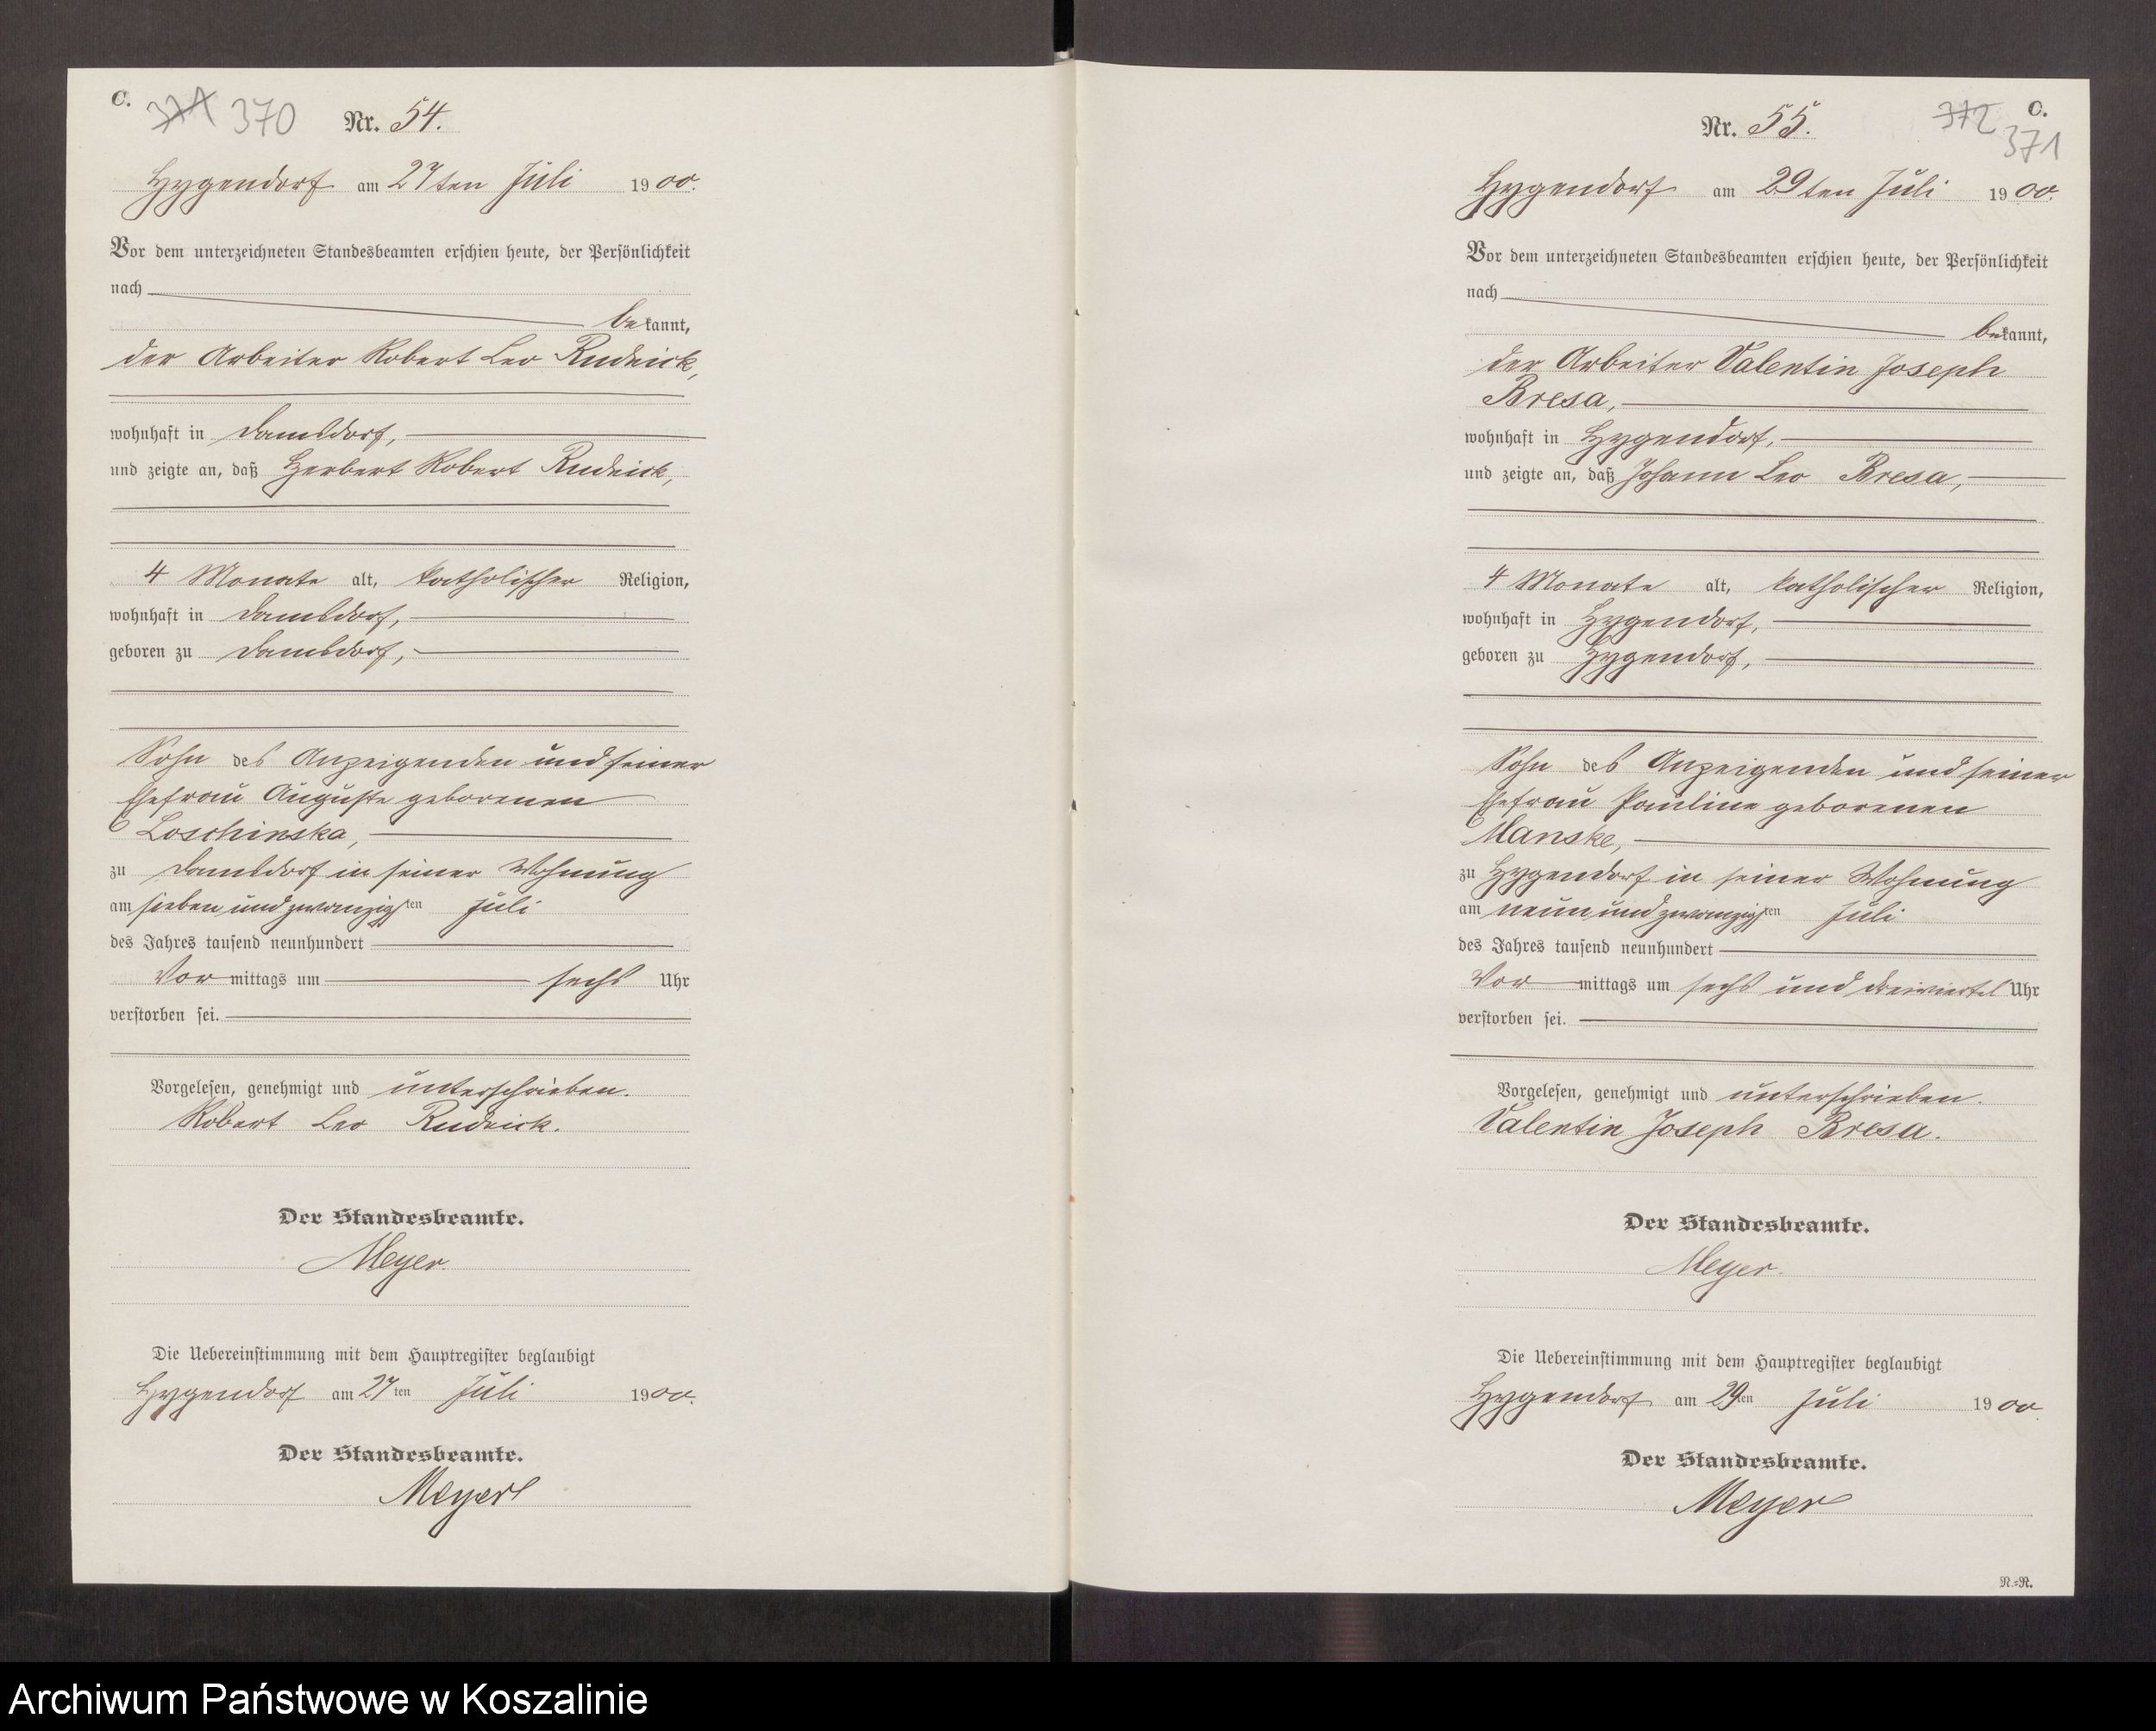 C.
371 370
Nr. 54.
Hygendorf am 27ten Juli 1900.
Vor dem unterzeichneten Standesbeamten erschien heute, der Persönlichkeit
nach
bekannt,
der Arbeiter Robert Leo Rudnick,
wohnhaft in Damsdorf,
und zeigte an, daß Herbert Robert Rudnick,
4 Monate alt, katholischer Religion,
wohnhaft in Damsdorf,
geboren zu Damsdorf,
Sohn des Anzeigenden und seiner
Ehefrau Auguste geborenen
Loschinska,
zu Damsdorf in seiner Wohnung
am sieben und zwanzigsten Juli
des Jahres tausend neunhundert
Vormittags um sechs Uhr
verstorben sei.
Vorgelesen, genehmigt und unterschrieben.
Robert Leo Rudnick.
Der Standesbeamte.
Meyer.
Die Uebereinstimmung mit dem Hauptregister beglaubigt
Hygendorf am 27ten Juli 1900.
Der Standesbeamte.
Meyer
C.
372 371
Nr. 55.
Hygendorf am 29ten Juli 1900.
Vor dem unterzeichneten Standesbeamten erschien heute, der Persönlichkeit
nach
bekannt,
der Arbeiter Valentin Joseph
Bresa,
wohnhaft in Hygendorf,
und zeigte an, daß Johann Leo Bresa,
4 Monate alt, katholischer Religion,
wohnhaft in Hygendorf,
geboren zu Hygendorf,
Sohn des Anzeigenden und seiner
Ehefrau Pauline geborenen
Manske,
zu Hygendorf in seiner Wohnung
am neun und zwanzigsten Juli
des Jahres tausend neunhundert
Vormittags um sechs und dreiviertel Uhr
verstorben sei.
Vorgelesen, genehmigt und unterschrieben.
Valentin Joseph Bresa.
Der Standesbeamte.
Meyer.
Die Uebereinstimmung mit dem Hauptregister beglaubigt
Hygendorf am 29ten Juli 1900
Der Standesbeamte.
Meyer
N.=R.
Archiwum Państwowe w Koszalinie